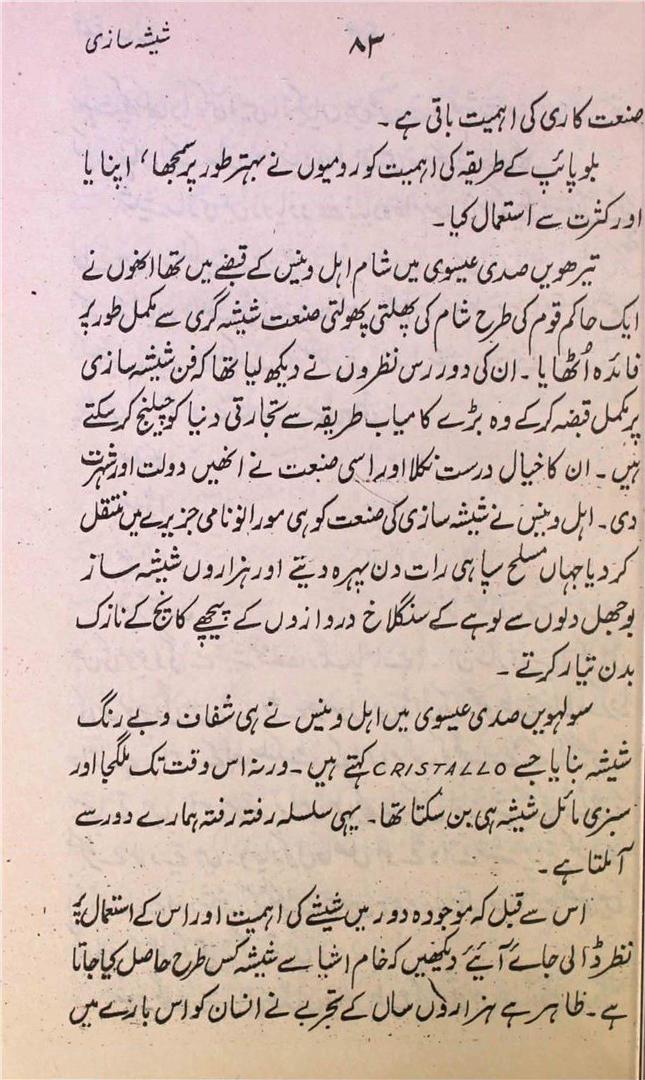 شیشہ سازی
۸۳
صنعت کاری کی اہمیت باقی ہے۔
بلو پائپ کے طریقہ کی اہمیت کو رومیوں نے بہتر طور پر سمجھا، اپنایا
اور کثرت سے استعمال کیا۔
تیرھویں صدی عیسوی میں شام اہل وینس کے قبضے میں تھا انھوں نے
ایک حاکم قوم کی طرح شام کی پھلتی پھولتی صنعت شیشہ گری سے مکمل طور پر
فائدہ اُٹھایا۔ ان کی دور رس نظروں نے دیکھ لیا تھا کہ فن شیشہ سازی
پر مکمل قبضہ کرکے وہ بڑے کامیاب طریقہ سے تجارتی دنیا کو چیلنج کر سکتے
ہیں۔ ان کا خیال درست نکلا اور اسی صنعت نے انھیں دولت اور شہرت
دی۔ اہل وینس نے شیشہ سازی کی صنعت کو ہی مورانو نامی جزیرے میں منتقل
کر دیا جہاں مسلح سپاہی رات دن پہرہ دیتے اور ہزاروں شیشہ ساز
بوجھل دلوں سے لوہے کے سنگلاخ دروازوں کے پیچھے کانچ کے نازک
بدن تیار کرتے۔
سولہویں صدی عیسوی میں اہل وینس نے ہی شفاف و بے رنگ
شیشہ بنایا جسے CRISTALLO کہتے ہیں۔ ورنہ اس وقت تک ملگجا اور
سبزی مائل شیشہ ہی بن سکتا تھا۔ یہی سلسلہ رفتہ رفتہ ہمارے دور سے
آ ملتا ہے۔
اس سے قبل کہ موجودہ دور میں شیشے کی اہمیت اور اس کے استعمال پر
نظر ڈالی جائے آئیے دیکھیں کہ خام اشیا سے شیشہ کس طرح حاصل کیا جاتا
ہے۔ ظاہر ہے ہزاروں سال کے تجربے نے انسان کو اس بارے میں